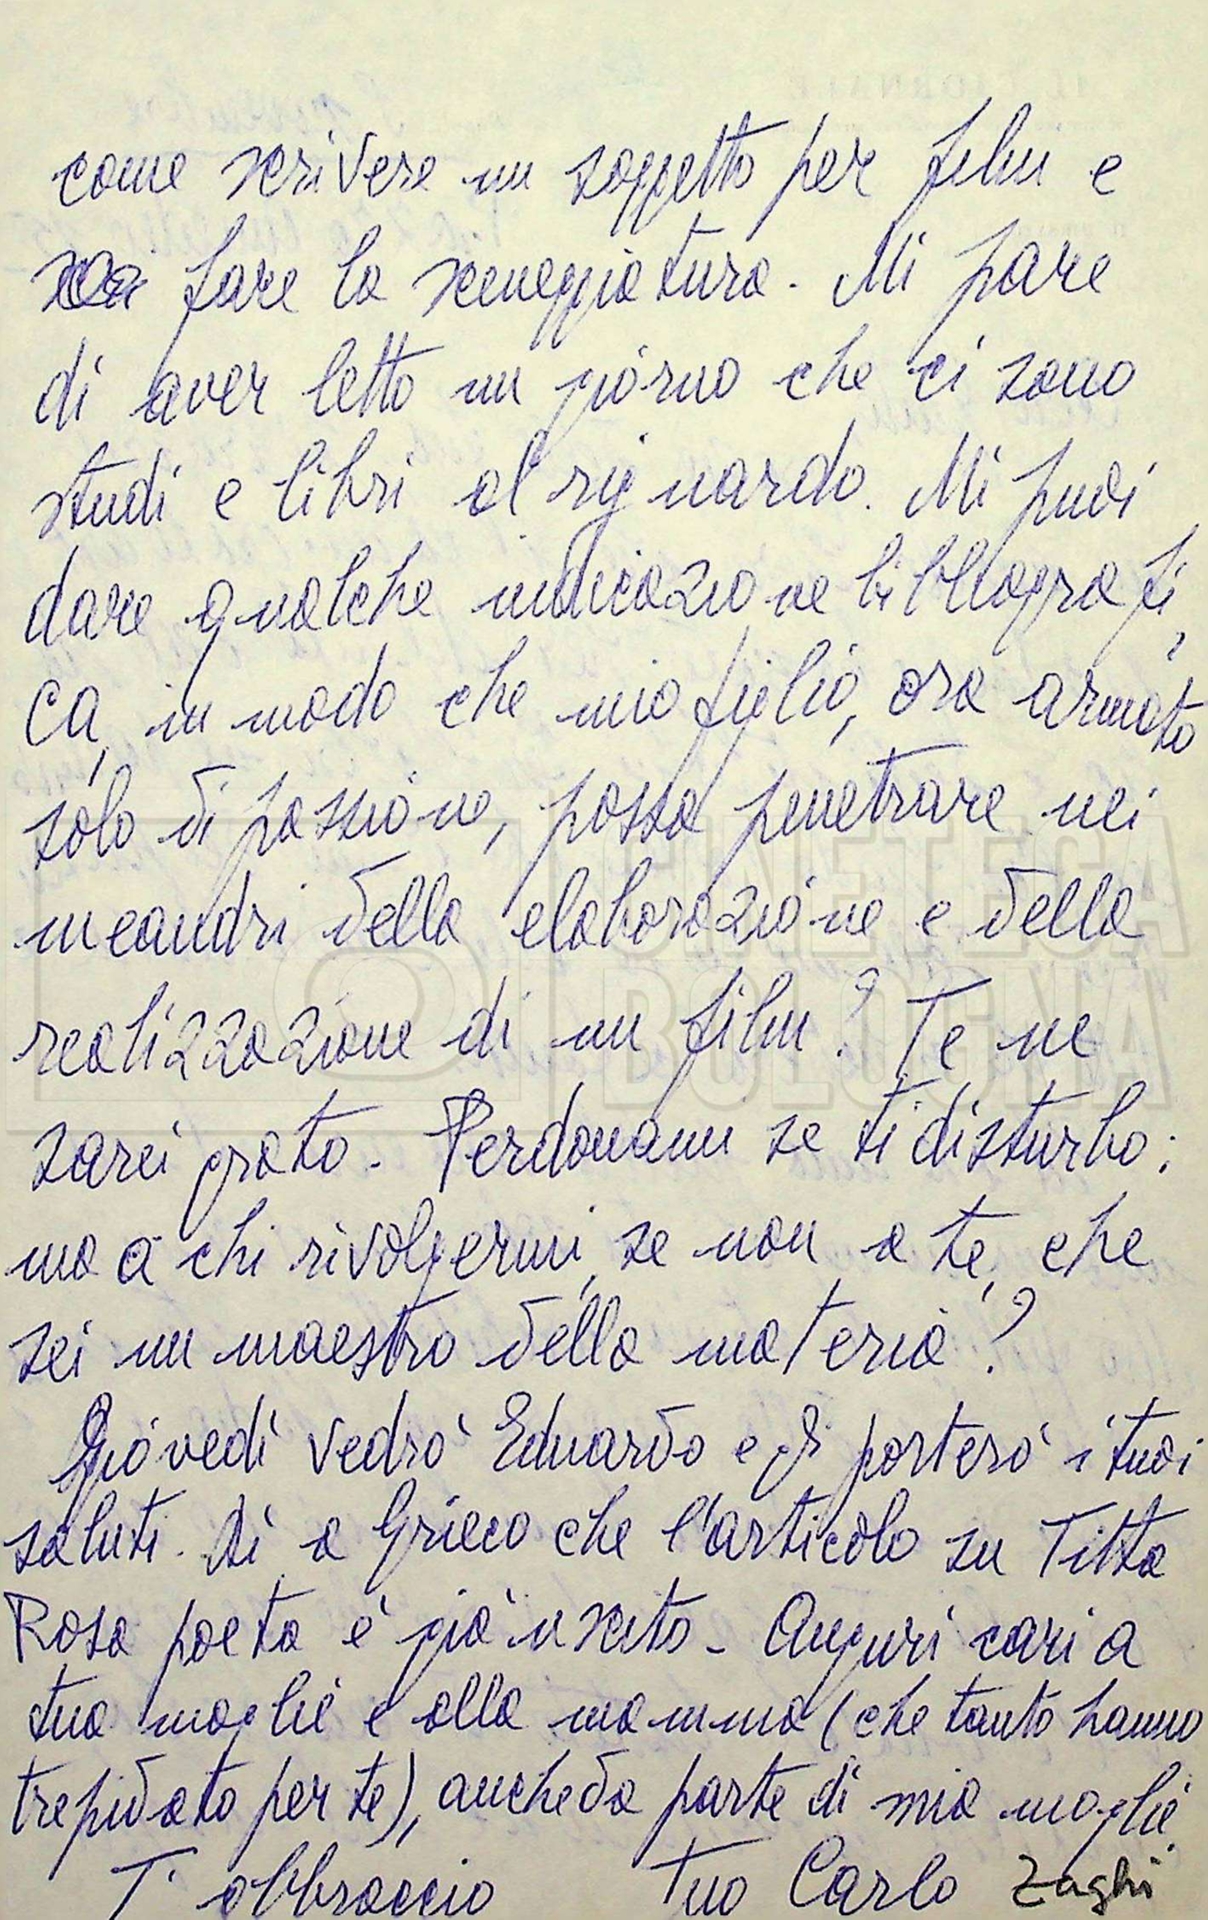 come scrivere un soggetto per film e
fare la sceneggiatura. Mi pare
di aver letto un giorno che ci sono
studi e libri al riguardo. Mi puoi
dare qualche indicazione bibliografi,
ca, in modo che mio figlio, ora armato
solo di passione, possa penetrare nei
meandri della elaborazione e della
realizzazione di un film? Te ne
sarei grato. Perdonami se ti disturbo:
ma a chi rivolgermi, se non a te, che
sei un maestro della materia?
Giovedì vedrò Eduardo e gli porterò i tuoi
saluti. Dì a Grieco che l'articolo su Titta
Rosa poeta è già uscito. Auguri cari a
tua moglie e alla mamma (che tanto hanno
trepidato per te), anche da parte di mia moglie.
T'abbraccio tuo Carlo Zaghi
CINETECA
BOLOGNA